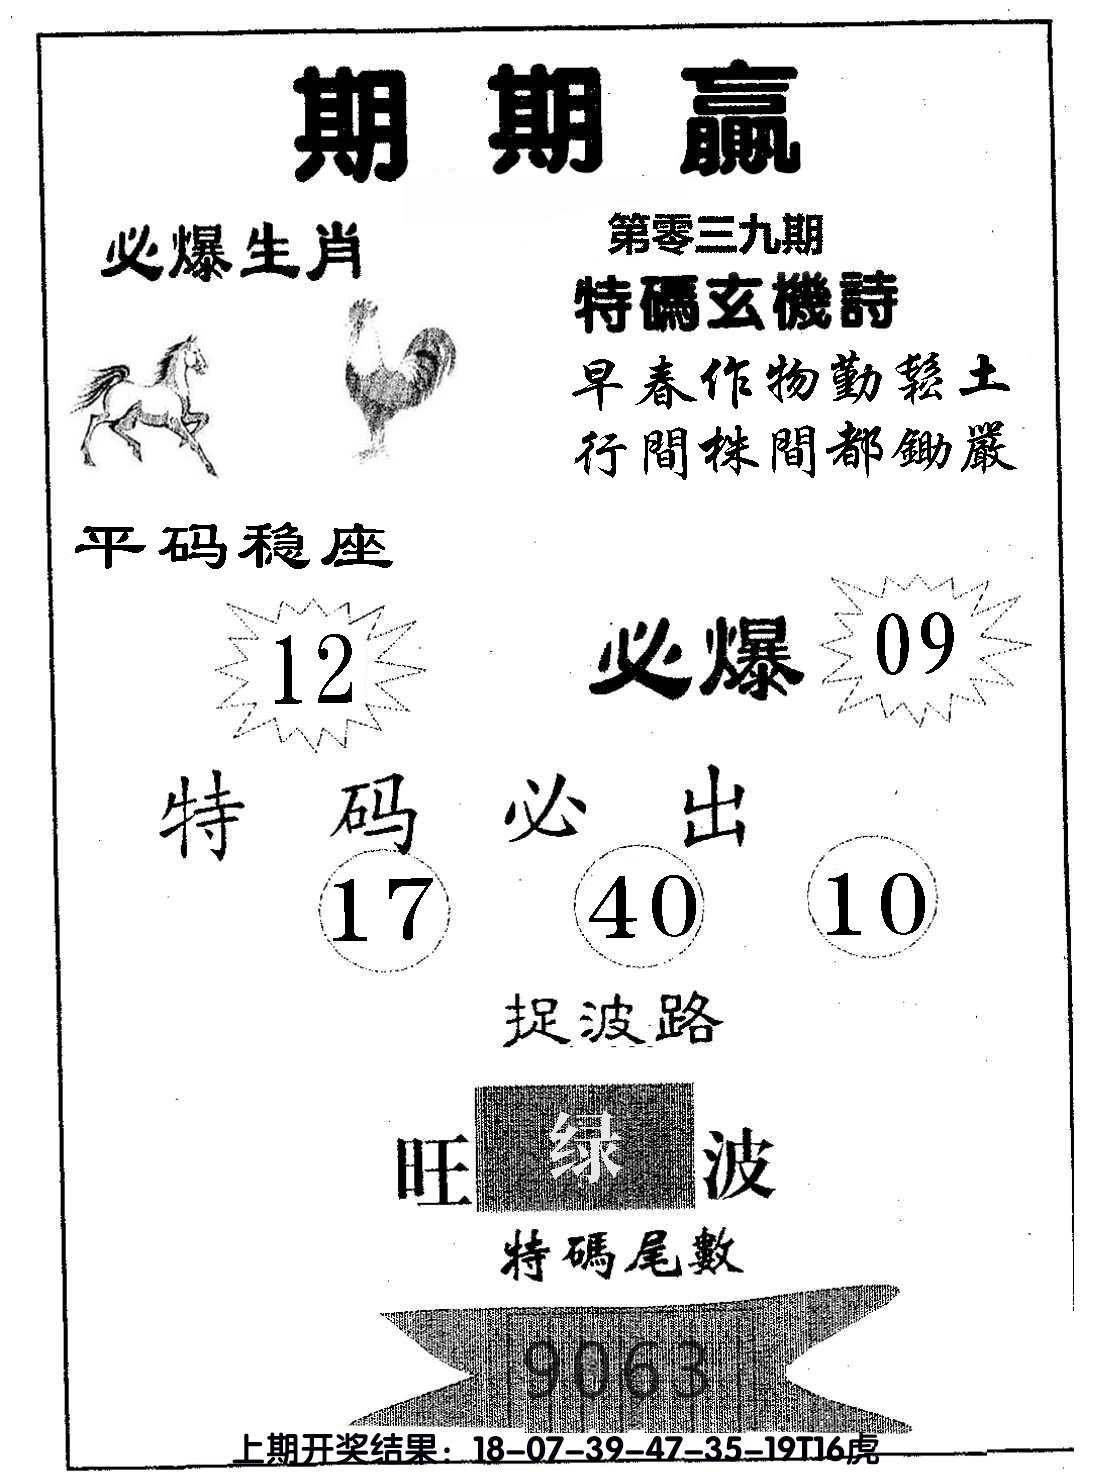 期期赢
必爆生肖
第零三九期
特碼玄機詩
早春作物勤鬆土
行間株間都鋤嚴
平码稳座
12
必爆 09
特码必出
17 40 10
捉波路
旺 绿 波
特碼尾數
9063
上期开奖结果：18-07-39-47-35-19T16虎